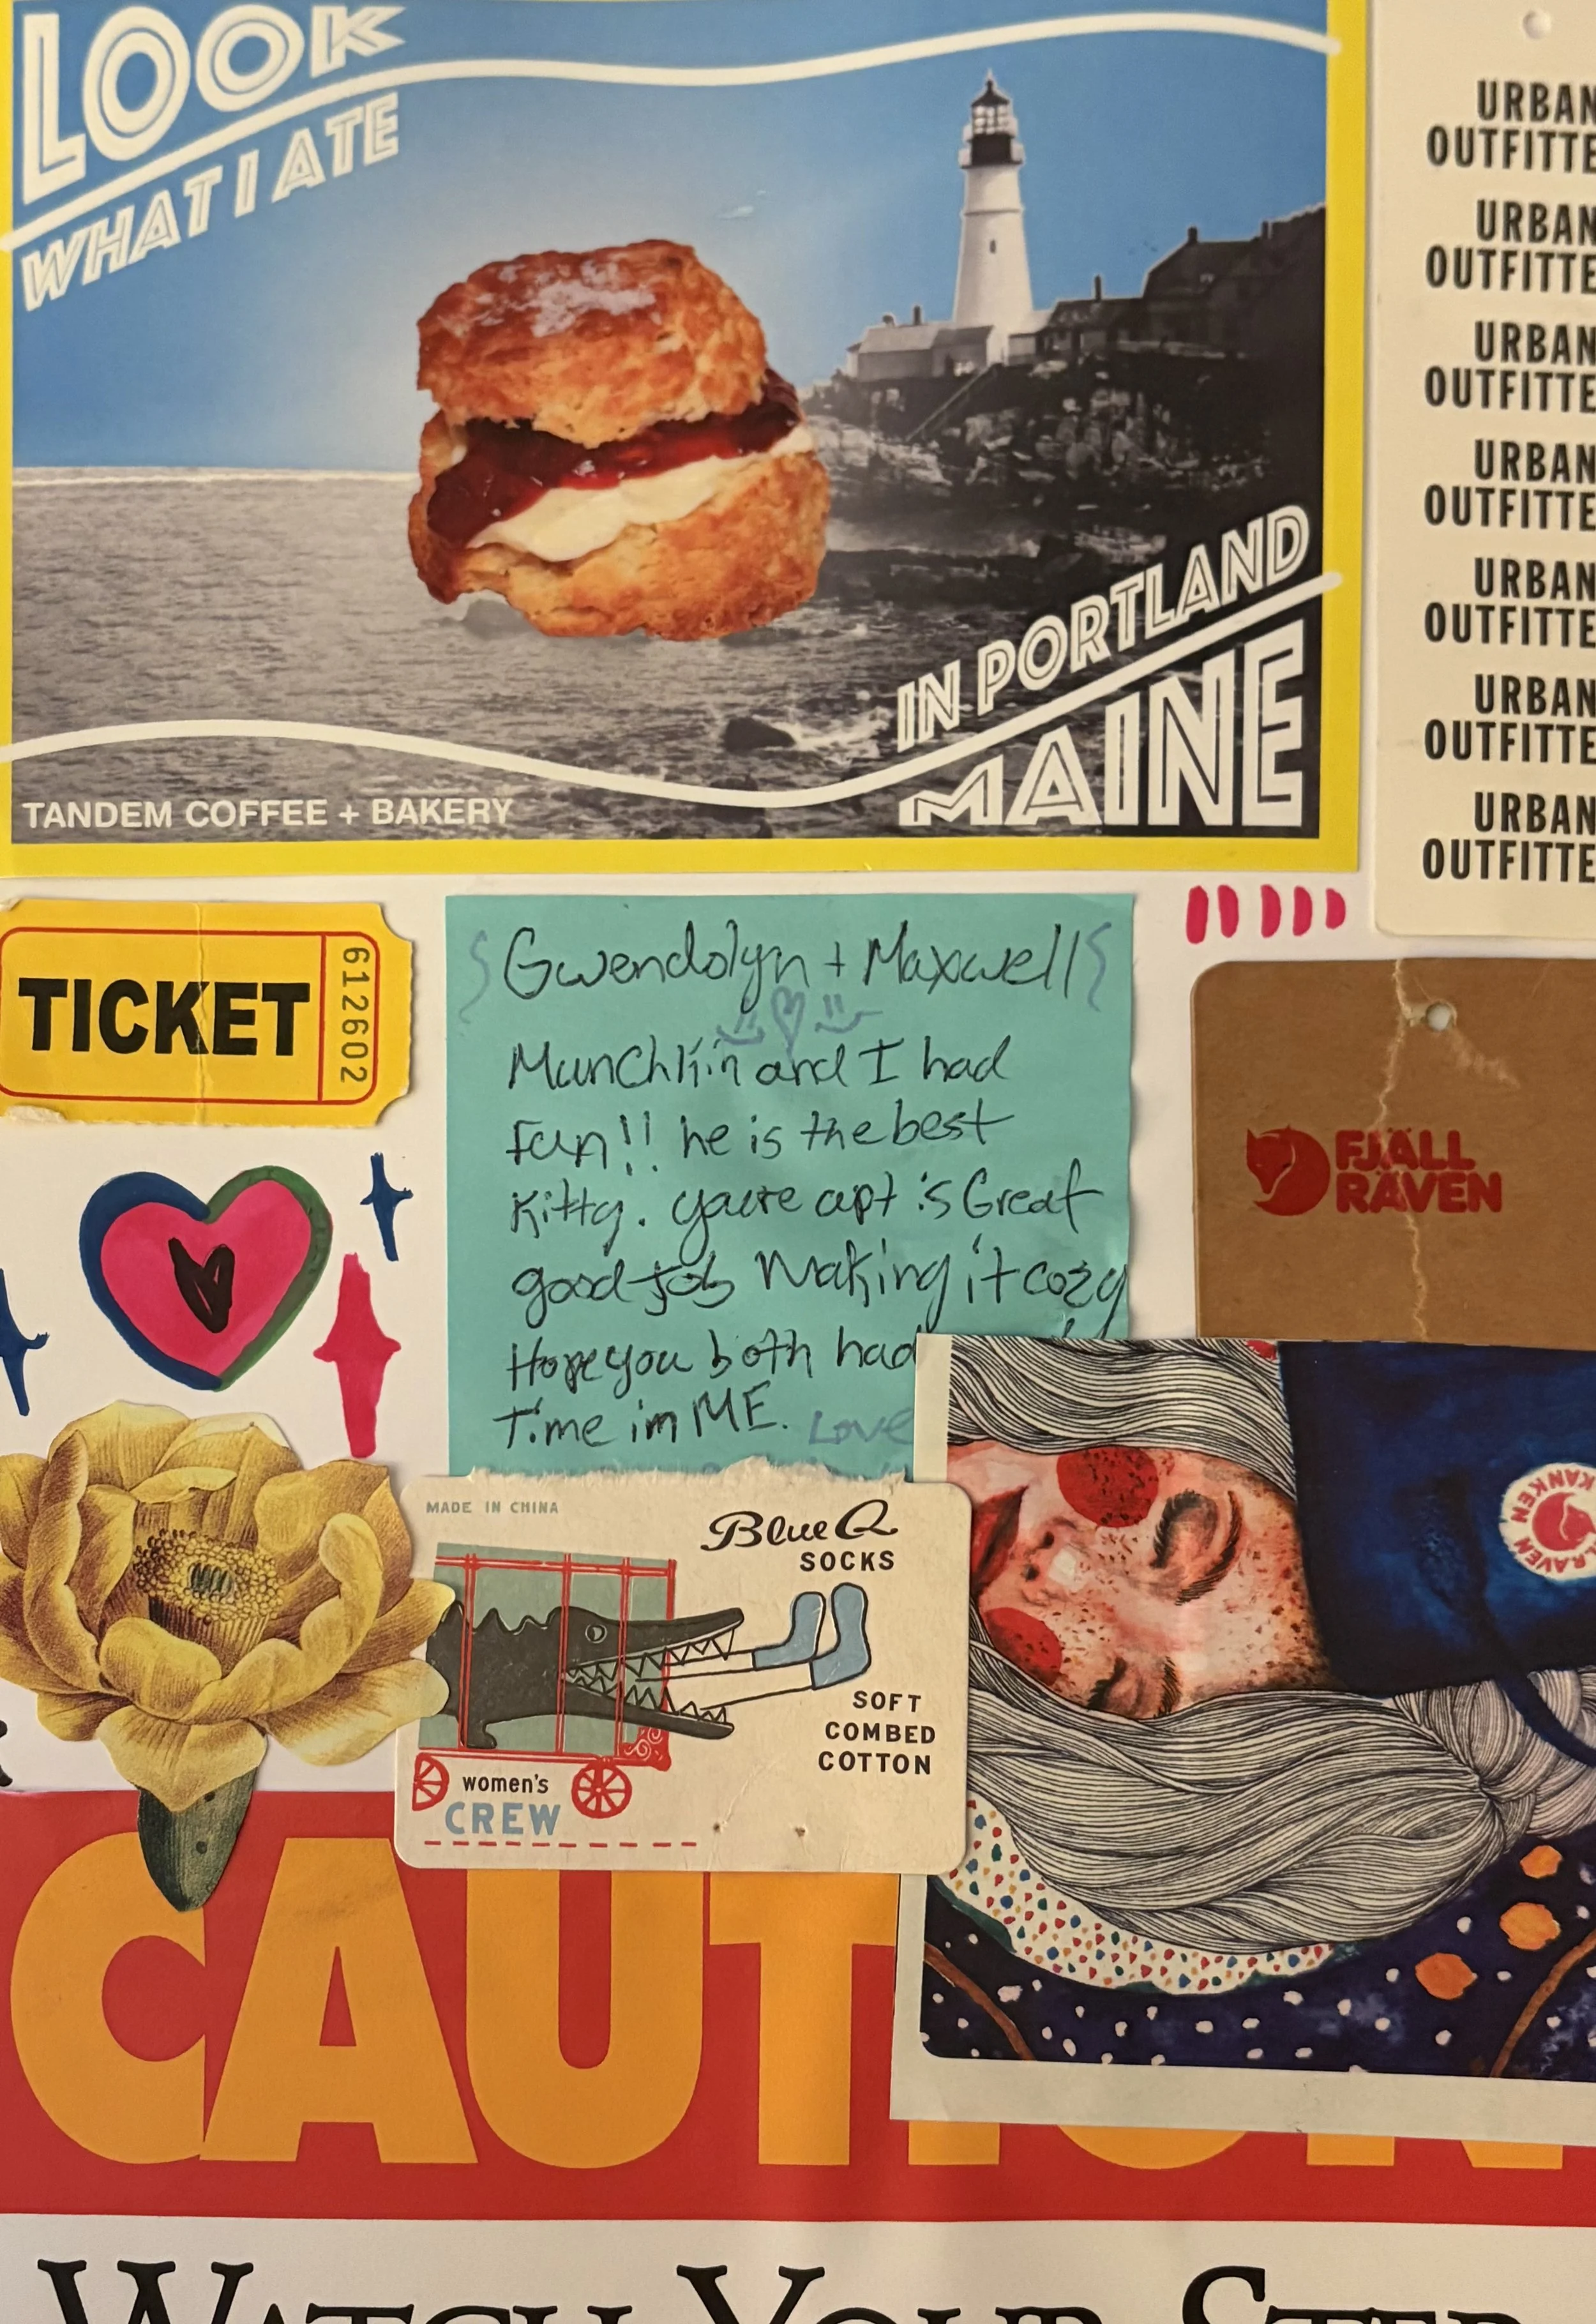 LOOK
WHAT I ATE
IN PORTLAND
MAINE
TANDEM COFFEE + BAKERY
URBAN
OUTFITTE
URBAN
OUTFITTE
URBAN
OUTFITTE
URBAN
OUTFITTE
URBAN
OUTFITTE
URBAN
OUTFITTE
URBAN
OUTFITTE
TICKET
612602
Gwendolyn + Maxwell
Munchkin and I had
fun!! he is the best
Kitty. youre apt is Great
good job making it cozy
Hope you both had
Time in ME. Love
FJÄLL
RÄVEN
MADE IN CHINA
Blue Q
SOCKS
SOFT
COMBED
COTTON
women's
CREW
KÅNKEN
RÄVEN
CAUTION
WATCH YOUR STEP